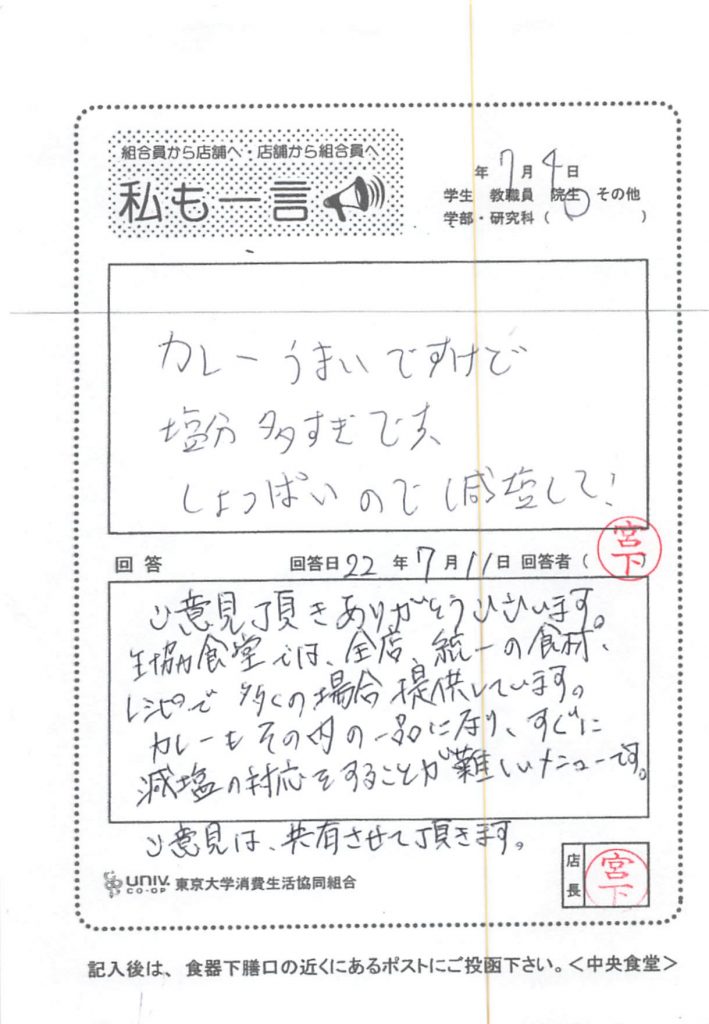 組合員から店舗へ・店舗から組合員へ
私も一言
年 7月 4日
学生 教職員 院生 その他
学部・研究科（ ）
カレーうまいですけど
塩分多すぎです、
しょっぱいので減塩して!
回答 回答日 22 年 7 月 11 日 回答者（宮下）
ご意見頂きありがとうございます。
生協食堂では、全店、統一の食材、
レシピで多くの場合提供しています。
カレーもその内の一品になり、すぐに
減塩の対応をすることが難しいメニューです。
ご意見は、共有させて頂きます。
UNIV. CO-OP 東京大学消費生活協同組合
店長 宮下
記入後は、食器下膳口の近くにあるポストにご投函下さい。＜中央食堂＞